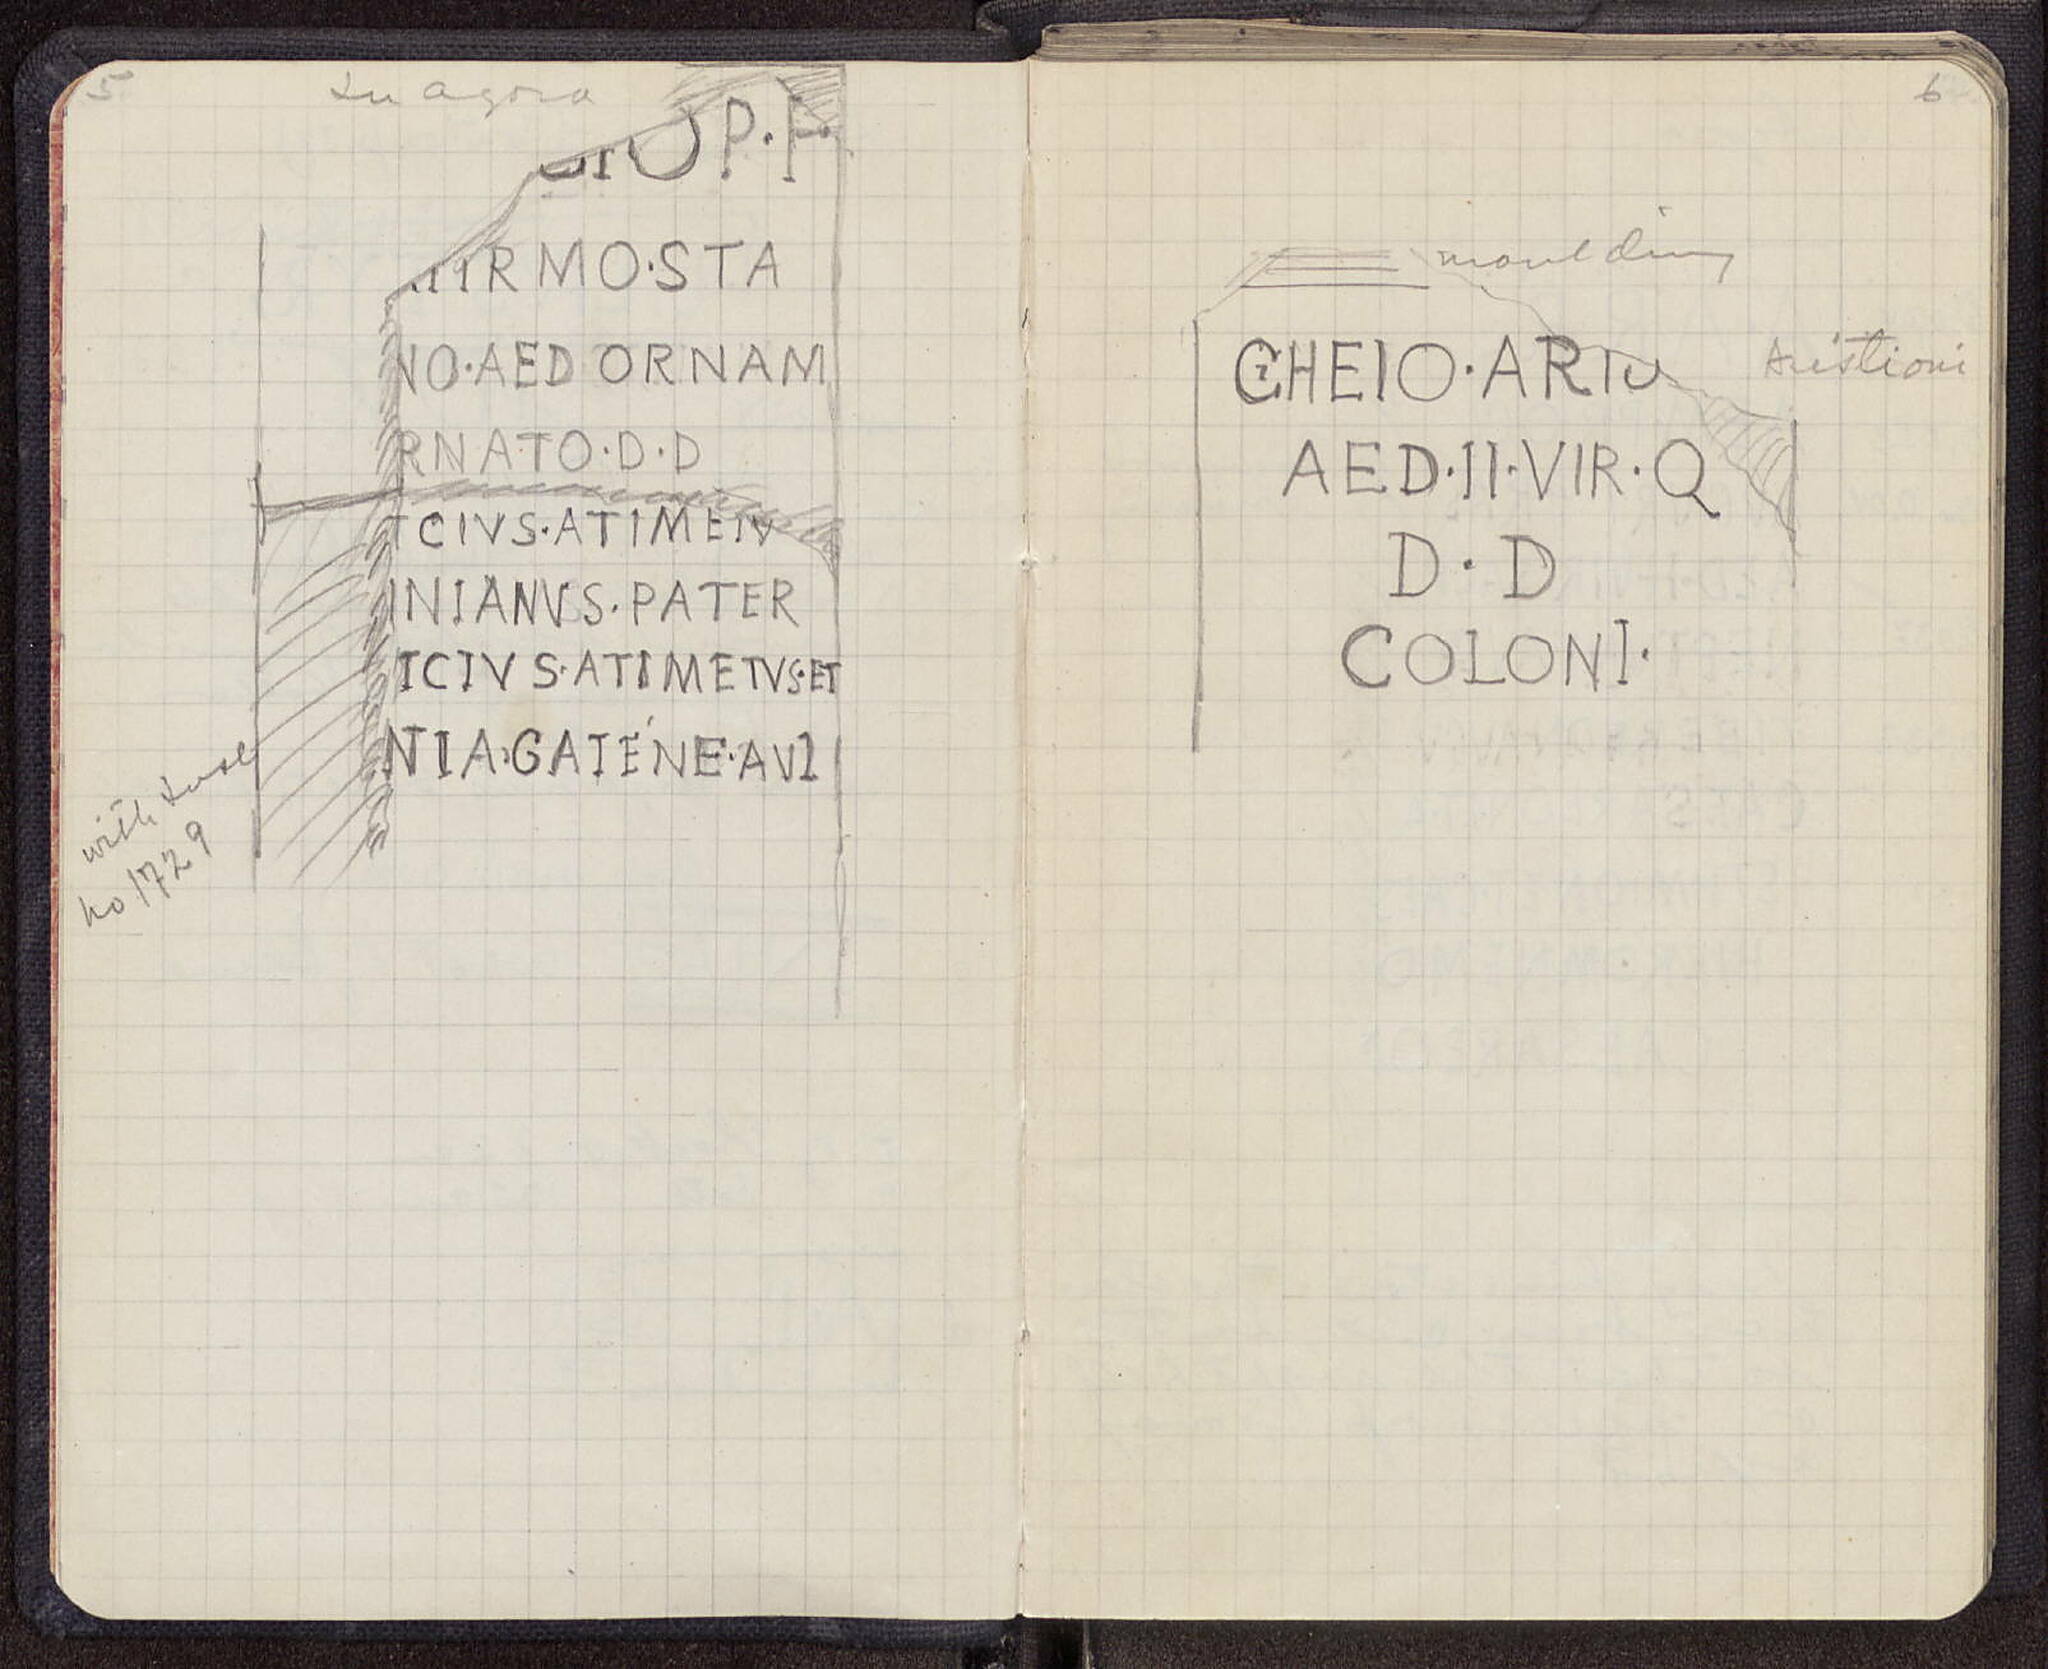 5
In agora
CIO P·F·
IIRMO·STA
NO·AED ORNAM
RNATO·D·D
TCIVS·ATIMEIV
INIANVS·PATER
ICIVS·ATIMETVS·ET
NTIA·GATENE·AVI
with
no 1729
6
moulding
CHEIO·ARTI
Aristioni
AED·II·VIR·Q
D·D
COLONI·